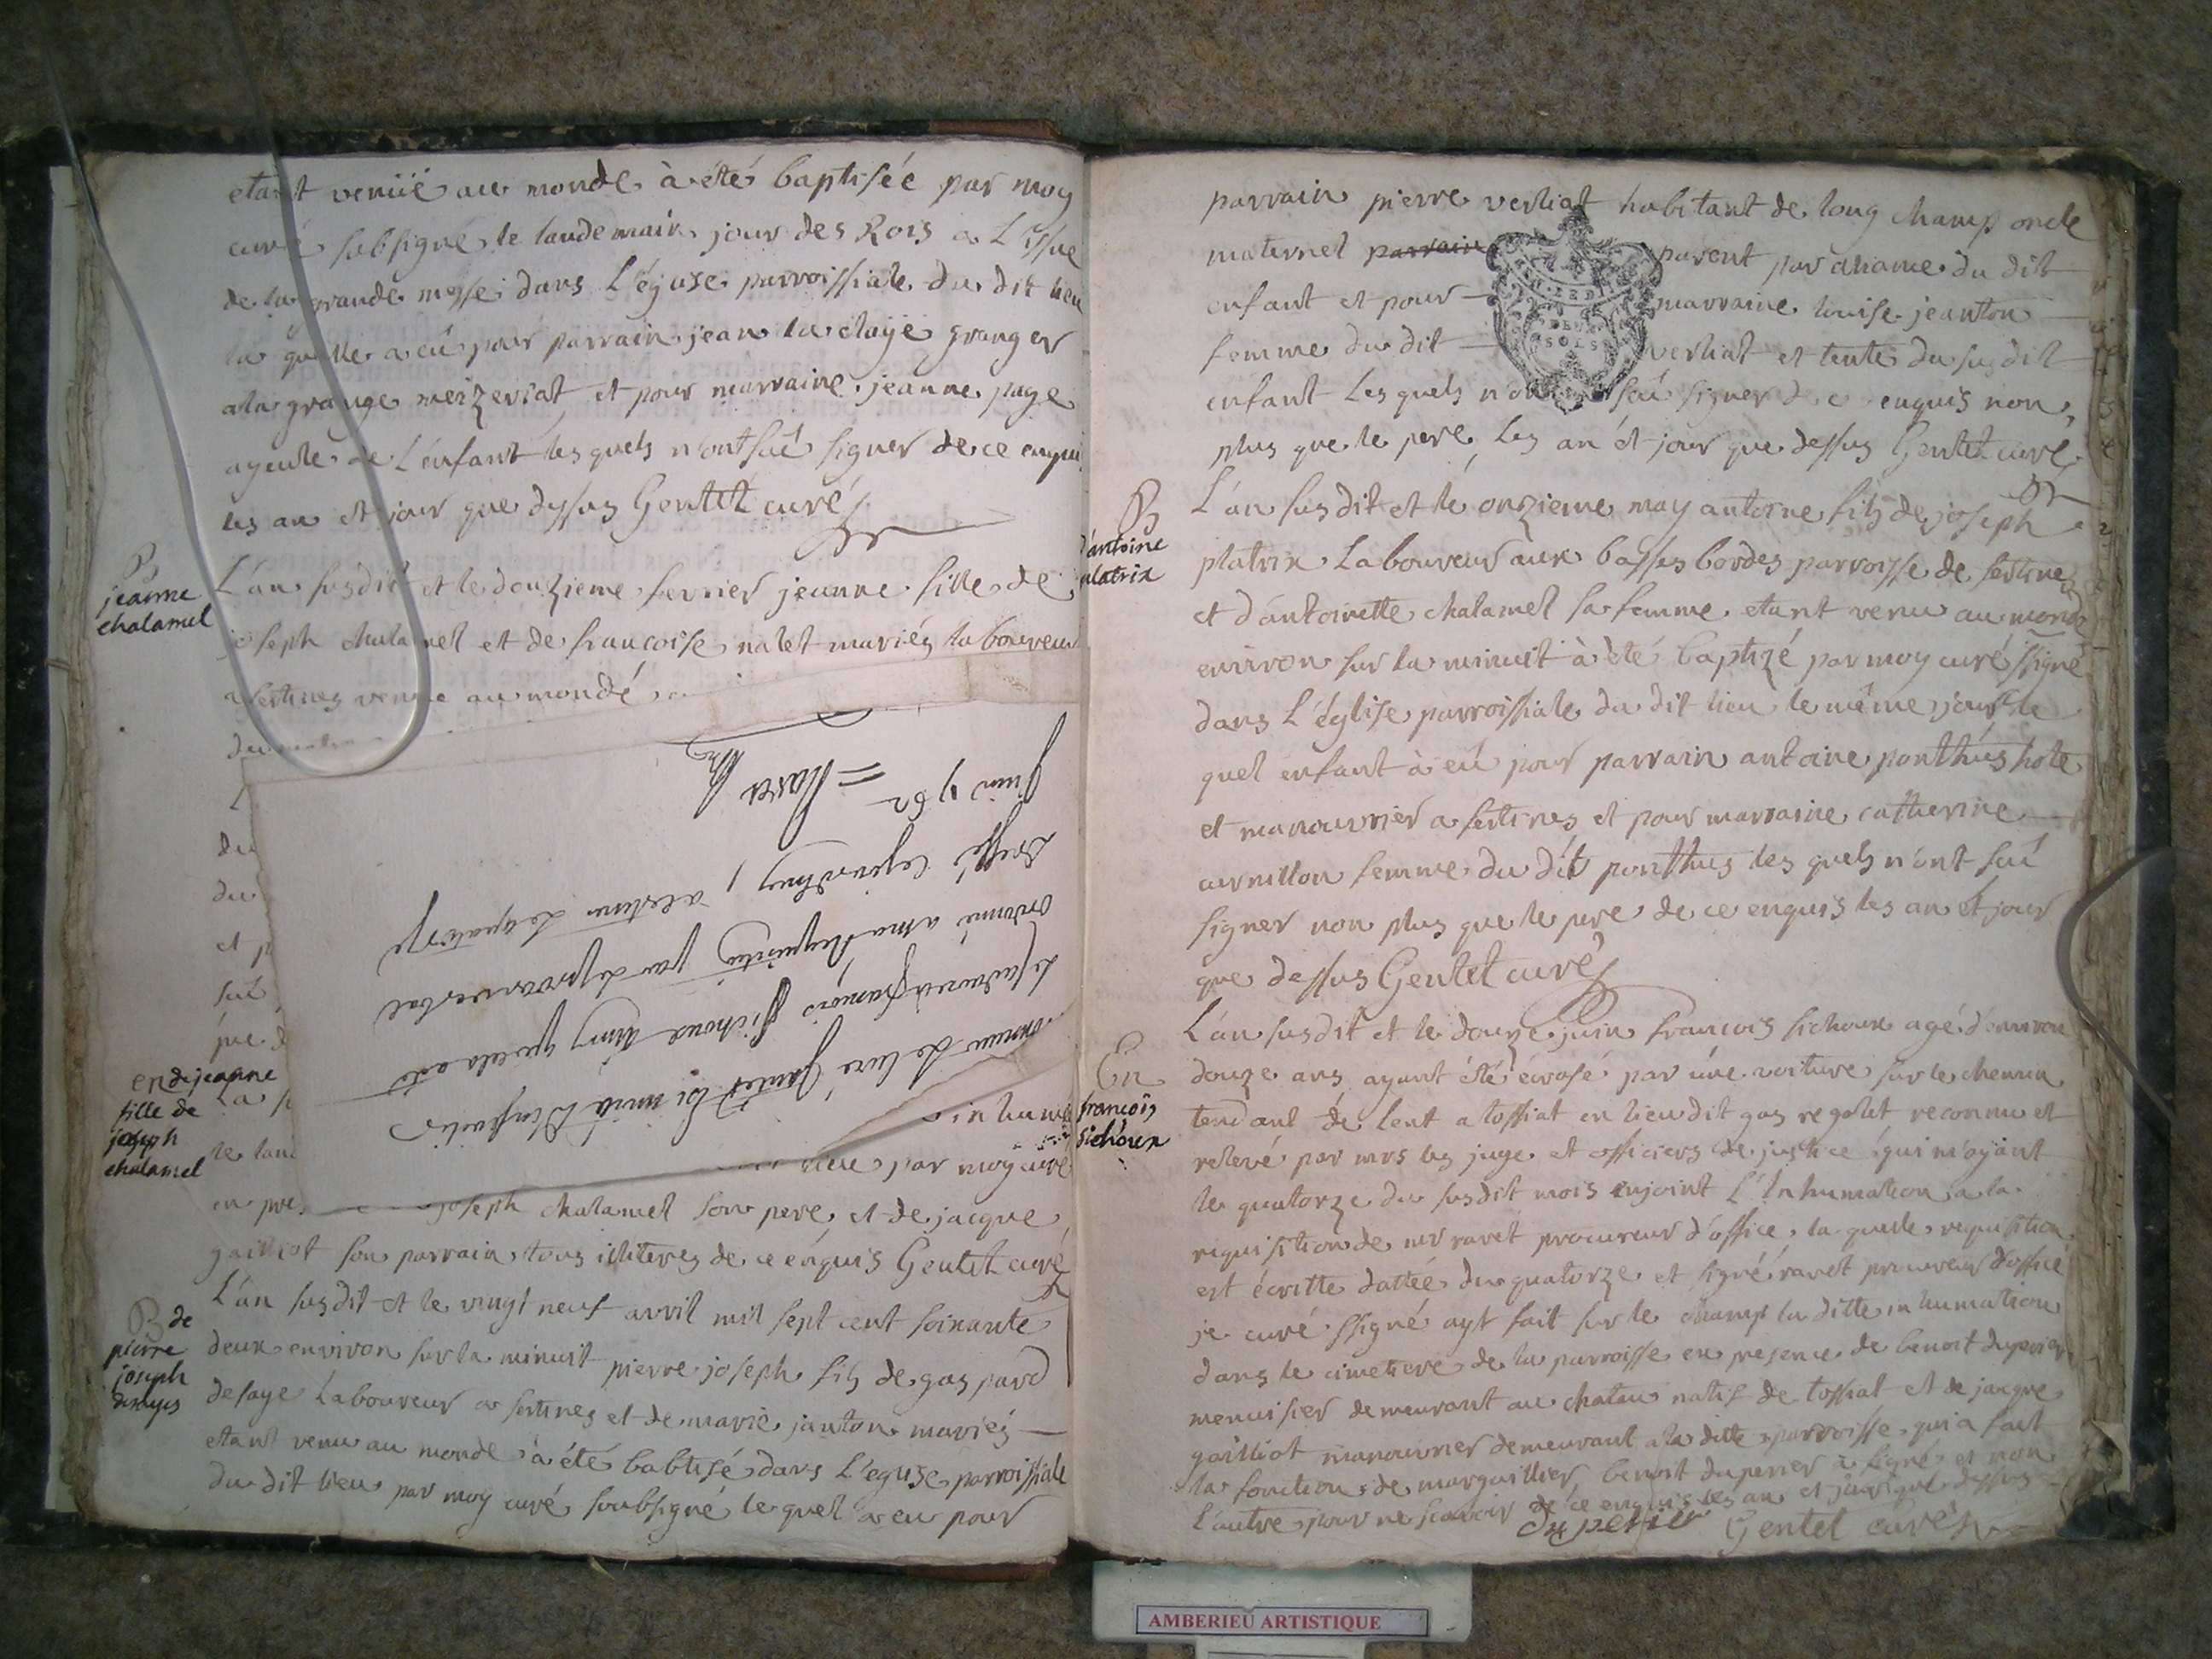 etant venüe au monde à été baptisée par moy
curé subsigné le landemain jour des Rois a L'issue
de la grande messe dans L'église parroissiale du dit lieu
la quelle a eû pour parrain jean la claye granger
a la grange meizeriat et pour marraine jeanne page
ayeule de L'enfant les quels n'ont scû signer de ce enquis
les an et jour que dessus Gentet curé
B
jeanne
chalamel
L'an susdit et le douzieme fevrier jeanne fille de
joseph chalamel et de francoise nalet mariés laboureur
a sertines venue au monde
du matin
du
du
et p
scû
que d
en de jeanne
fille de
joseph
chalamel
La
le lan
inhumé
lieu par moy curé
en pre joseph chalamel son pere et de jacque
gailliot son parrain tous illiteres de ce enquis Gentet curé
B de
pierre
joseph
desayes
L'an susdit et le vingt neuf avril mil sept cent soixante
deux environ sur la minuit pierre joseph fils de gaspard
desaye Laboureur a sertines et de marie janton mariés
etant venu au monde à été babtisé dans L'eglise parroissiale
du dit lieu par moy curé soubsigné le quel a eu pour
monsieur le curé Gentet
le cadavre de françois sichoux ainsy que cela a été
ordonné a ma Requisition par le procès verbal
dressé cejourdhuy, a sertines le quatorze
juin 1762 = Ravet
parrain pierre verliat habitant de long champ oncle
maternel parrain parent par aliance du dit
enfant et pour marraine louise jeanton
femme du dit verliat et tente du susdit
enfant Les quels n'ont scû signer de ce enquis non
plus que le pere les an et jour que dessus Gentet curé
B
d'antoine
platrix
L'an susdit et le onzieme may antoine fils de joseph
platrix Laboureur aux basses bordes parroisse de sertines
et d'antoinette chalamel sa femme etant venu au monde
environ sur la minuit à été baptizé par moy curé ssigné
dans L'église parroissiale du dit lieu le même jour le
quel enfant à eû pour parrain antoine ponthus hote
et manouvrier a sertines et pour marraine catherine
curnillon femme du dit ponthus les quels n'ont scû
signer non plus que le pere de ce enquis les an et jour
que dessus Gentet curé
En
francois
sichoux
L'an susdit et le douze juin francois sichoux agé d'environ
douze ans ayant été écrasé par une voiture sur le chemin
tendant de Lent a tossiat en lieu dit gas regolet reconnu et
relevé par mrs les juge et officiers de justice qui m'ayant
le quatorze du susdit mois enjoint L'Inhumation a la
requisition de mr ravet procureur d'office, la quelle requisition
est écritte dattée du quatorze et signé ravet procureur d'office
je curé ssigné ayt fait sur le champ la ditte inhumation
dans le cimetiere de la parroisse en presence de benoit duperier
menuisier demeurant au chateau natif de tossiat et de jacque
gailliot manouvrier demeurant a la ditte parroisse qui a fait
la fonction de marguillier benoit duperier a signé et non
L'autre pour ne scavoir de ce enquis les an et jour que dessus
Duperier Gentet curé
AMBERIEU ARTISTIQUE